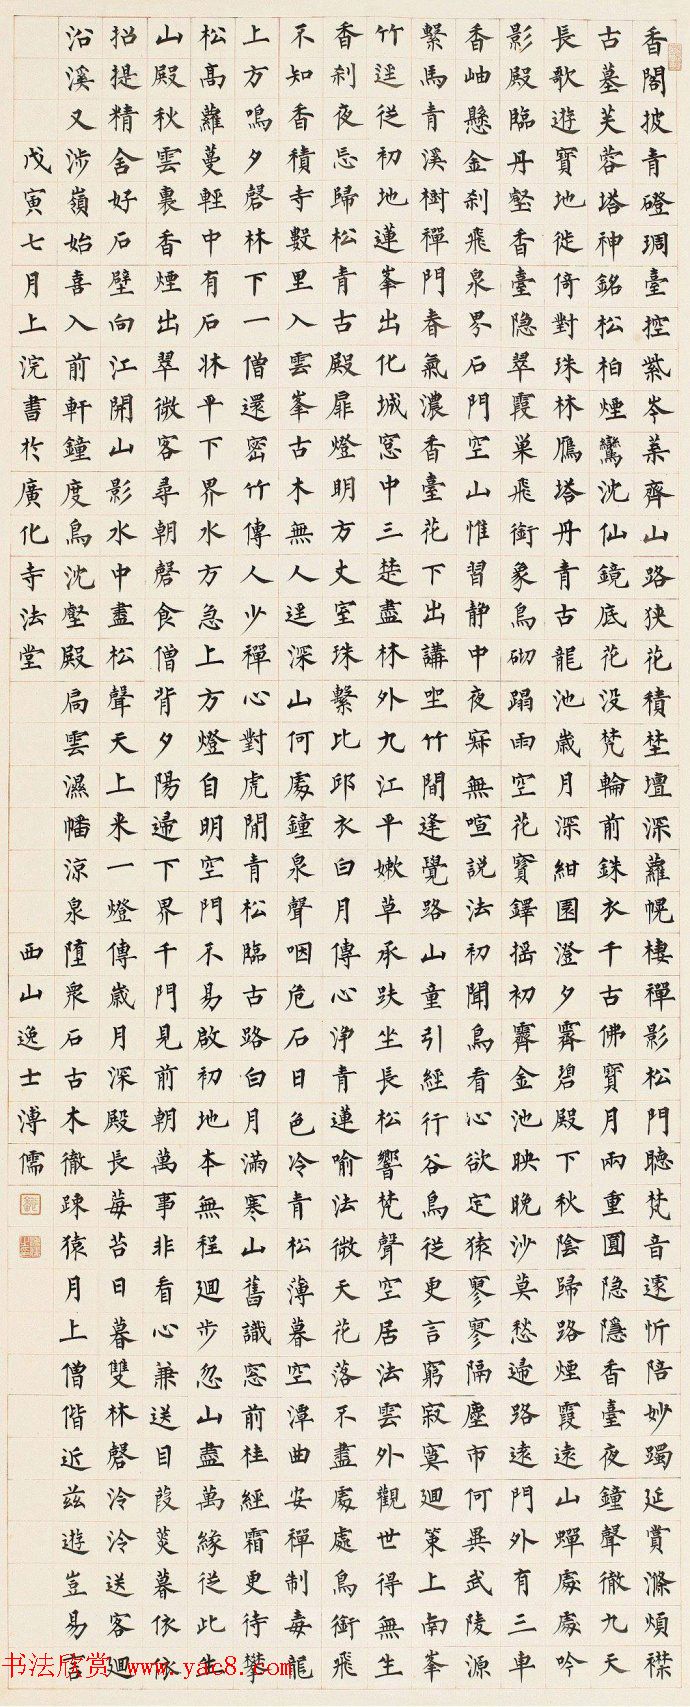 香閣披青磴琱臺控紫岑葉齊山路狹花積埜壇深蘿幌棲禪影松門聽梵音遽忻陪妙躅延賞滌煩襟
古墓芙蓉塔神銘松柏煙鸞沈仙鏡底花没梵輪前銖衣千古佛寶月兩重圓隐隱香臺夜鐘聲徹九天
長歌遊寶地徙倚對珠林鴈塔丹青古龍池歲月深紺園澄夕霽碧殿下秋陰歸路煙霞遠山蟬處處吟
影殿臨丹壑香臺隐翠霞巢飛銜象鳥砌蹋雨空花寶鐸摇初霽金池映晚沙莫愁歸路遠門外有三車
香岫懸金刹飛泉界石門空山惟習静中夜寂無喧説法初聞鳥看心欲定猿寥寥隔塵市何異武陵源
繫馬青溪樹禪門春氣濃香臺花下出講坐竹間逢覺路山童引經行谷鳥從更言窮寂寞廻策上南峯
竹逕從初地蓮峯出化城窓中三楚盡林外九江平嫩草承趺坐長松響梵聲空居法雲外觀世得無生
香刹夜忘歸松青古殿扉燈明方丈室珠繫比邱衣白月傳心浄青蓮喻法微天花落不盡處處鳥銜飛
不知香積寺數里入雲峯古木無人逕深山何處鐘泉聲咽危石日色冷青松薄暮空潭曲安禪制毒龍
上方鳴夕磬林下一僧還密竹傳人少禪心對虎閒青松臨古路白月滿寒山舊識窓前桂經霜更待攀
松髙蘿蔓輕中有石牀平下界水方急上方燈自明空門不易啟初地本無程廻步忽山盡萬緣從此生
山殿秋雲裏香煙出翠微客尋朝磬食僧背夕陽歸下界千門見前朝萬事非看心兼送目葭菼暮依依
招提精舍好石壁向江開山影水中盡松聲天上来一燈傳歲月深殿長莓苔日暮雙林磬泠泠送客廻
沿溪又涉嶺始喜入前軒鐘度鳥沈壑殿扃雲濕幡涼泉墮衆石古木徹踈猿月上僧偕近兹遊豈易言
戊寅七月上浣書於廣化寺法堂 西山逸士溥儒
书法欣赏 www.yac8.com